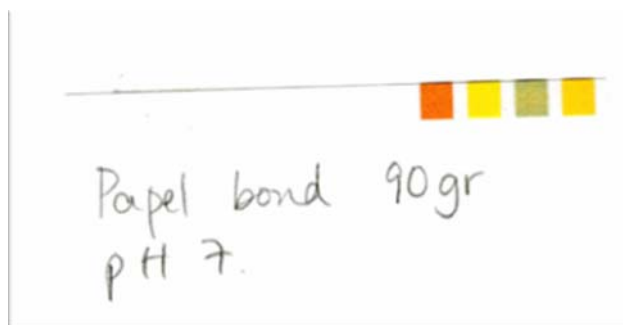 Papel bond 90gr
pH 7.